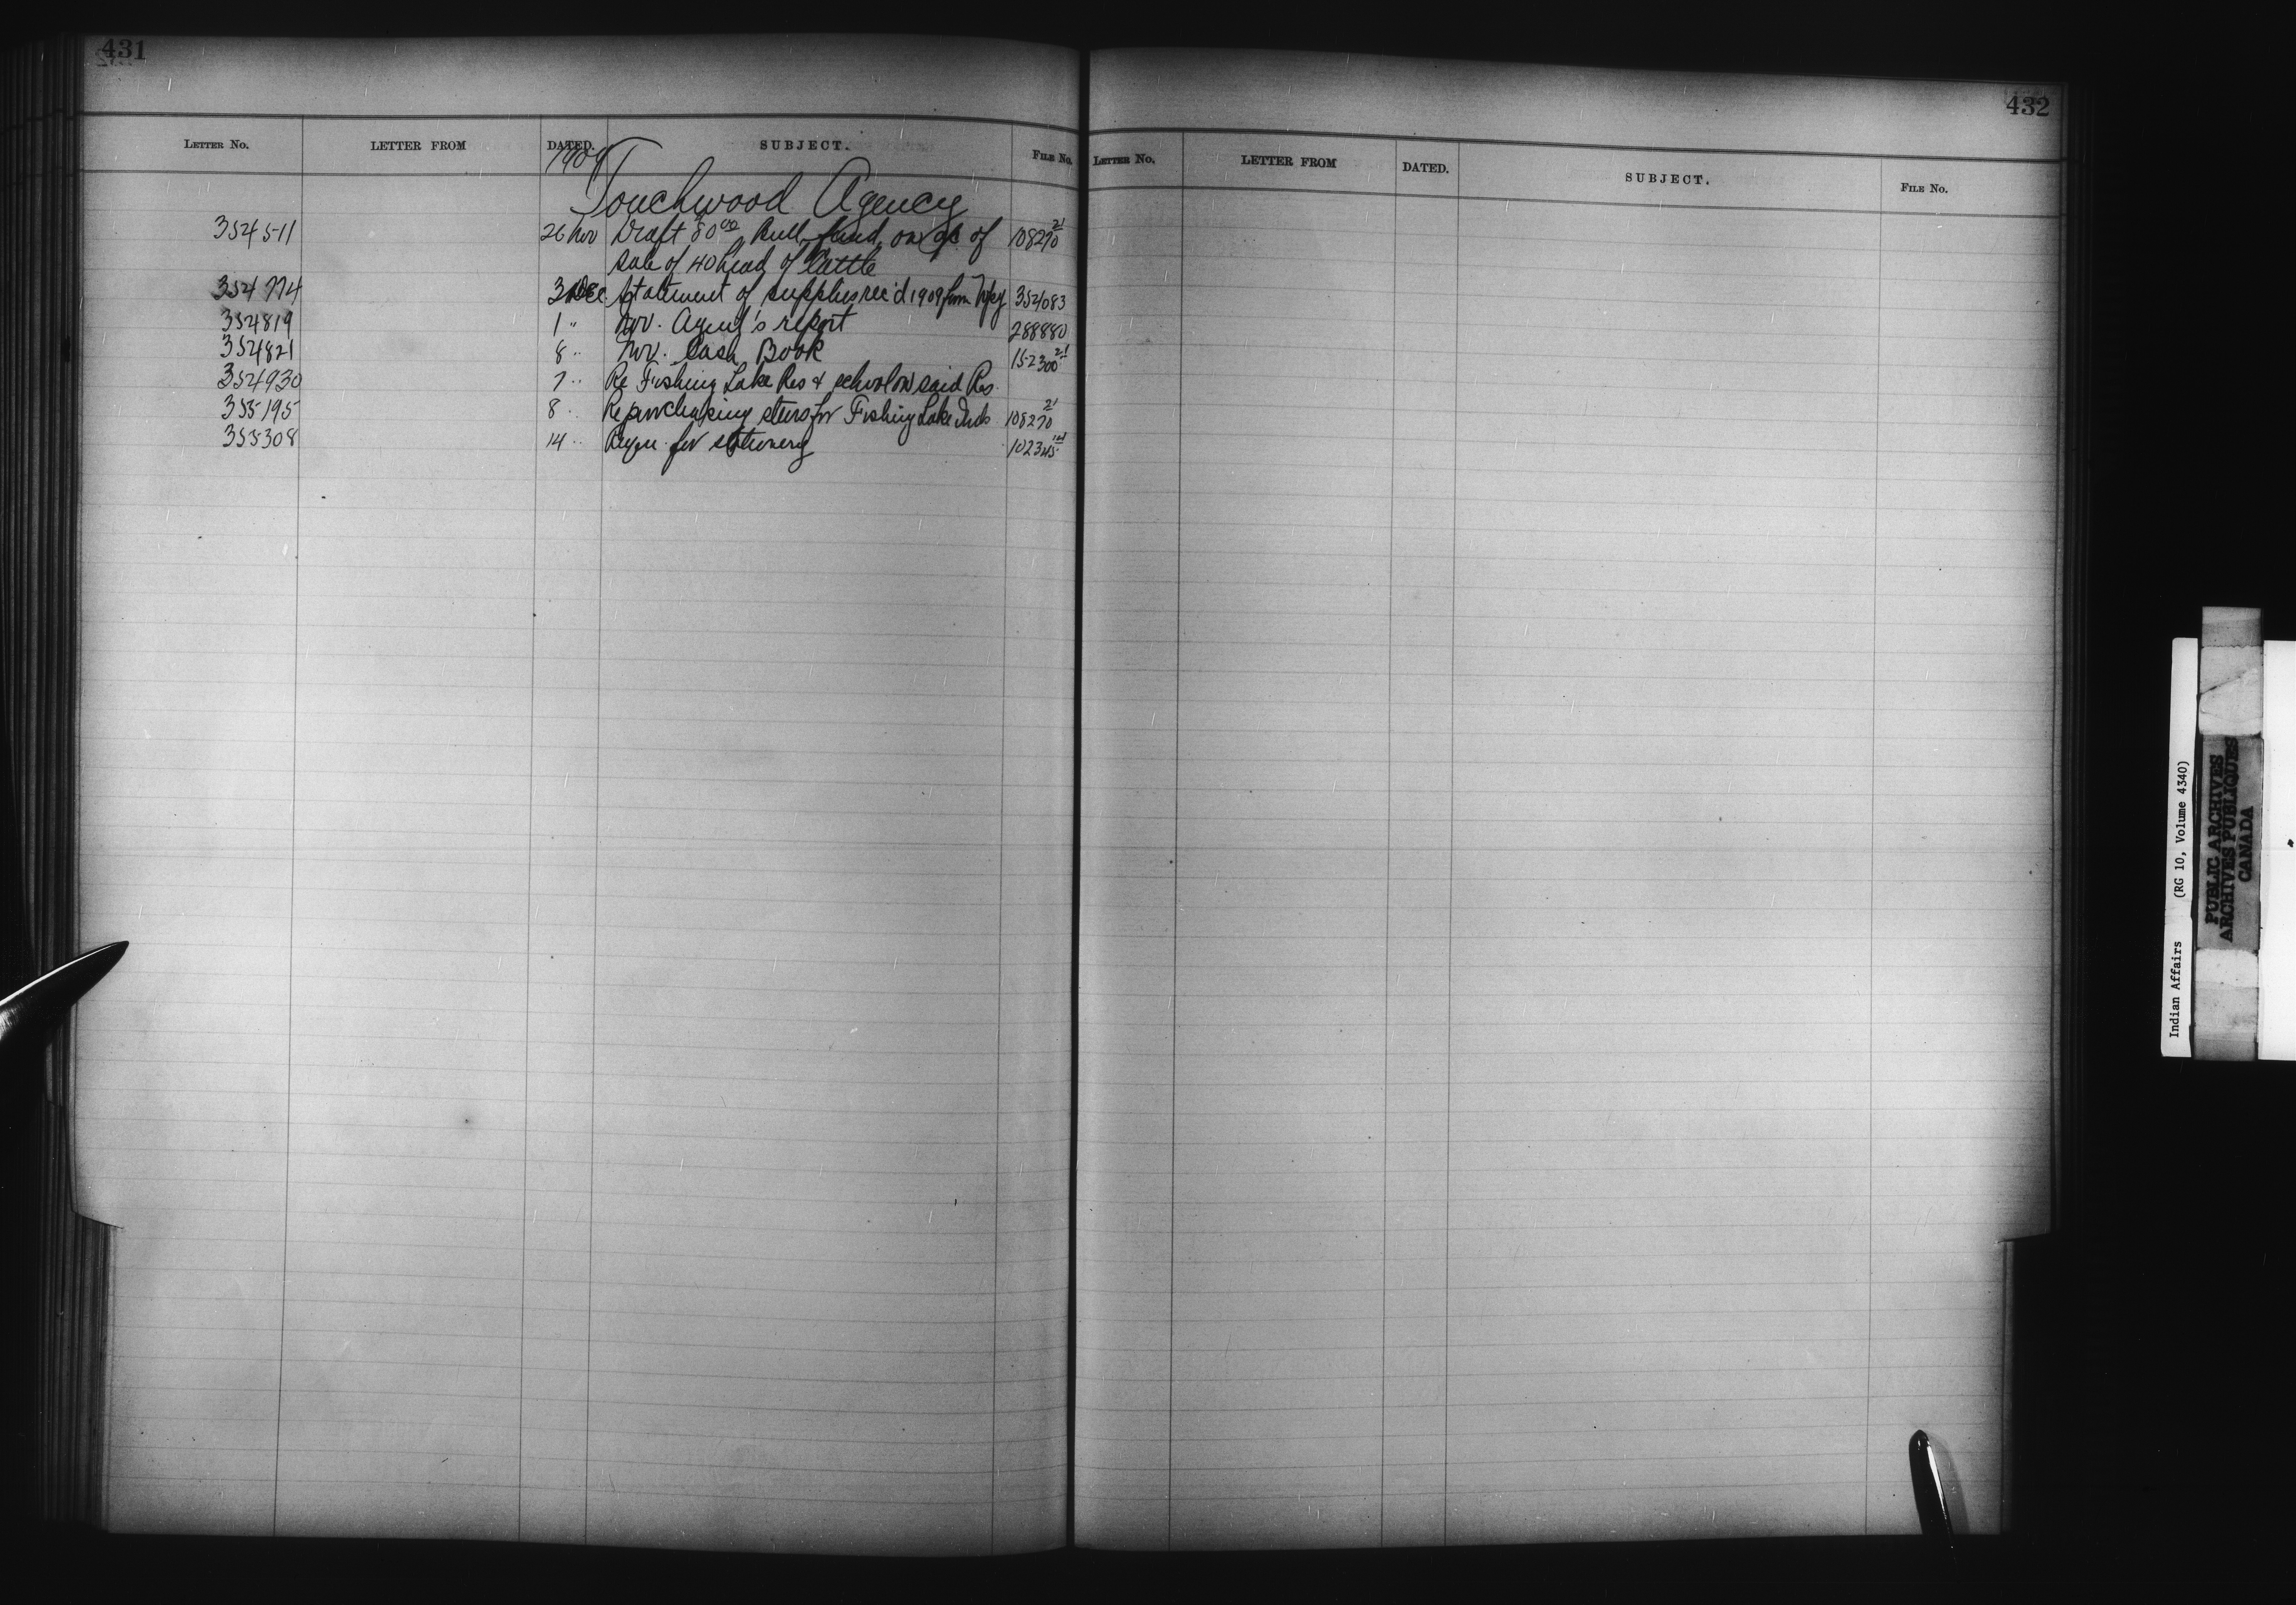 431
LETTER NO. LETTER FROM DATED. SUBJECT. FILE NO.
1909
Touchwood Agency
354511 26 Nov Draft 80 00 Bull fund on a/c of 108270 21
sale of 40 head of Cattle
354774 3 Dec Statement of supplies rec'd 1909 from Wpg 354083
354819 1 " Nov. Agent's report 288880
354821 8 " Nov. Cash Book 152300 21
354930 7 " Re Fishing Lake Res & school on said Res.
355195 8 " Re purchasing steers for Fishing Lake Inds 108270 21
355308 14 " Requn for stationery 102345
432
LETTER NO. LETTER FROM DATED. SUBJECT. FILE NO.
Indian Affairs (RG 10, Volume 4340)
PUBLIC ARCHIVES
ARCHIVES PUBLIQUES
CANADA